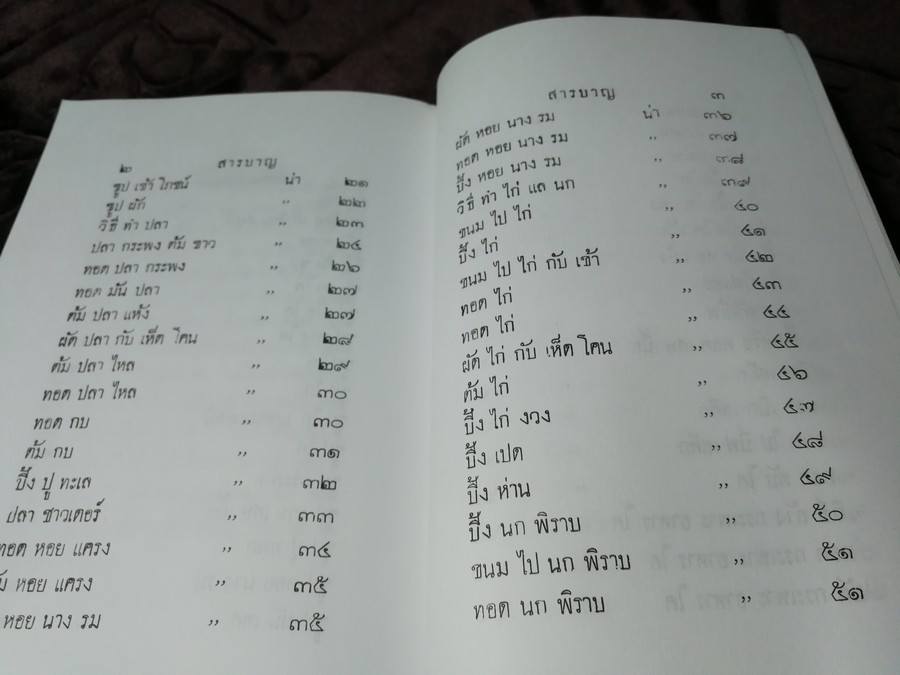 ๒ สารบาญ
ซูป เข้า โภชน์ น่า ๒๑
ซูป ผัก ,, ๒๒
วิธี ทำ ปลา ,, ๒๓
ปลา กระพง ต้ม ขาว ,, ๒๔
ทอด ปลา กระพง ,, ๒๖
ทอด มัน ปลา ,, ๒๗
ต้ม ปลา แห้ง ,, ๒๗
ผัด ปลา กับ เห็ด โคน ,, ๒๘
ต้ม ปลา ไหล ,, ๒๙
ทอด ปลา ไหล ,, ๓๐
ทอด กบ ,, ๓๐
ต้ม กบ ,, ๓๑
ปิ้ง ปู ทะเล ,, ๓๒
ปลา ซาวเดอร์ ,, ๓๓
ทอด หอย แครง ,, ๓๔
หอย แครง ,, ๓๕
หอย นาง รม ,, ๓๕
สารบาญ ๓
ผัด หอย นาง รม น่า ๓๖
ทอด หอย นาง รม ,, ๓๗
ปิ้ง หอย นาง รม ,, ๓๘
วิธี ทำ ไก่ แล นก ,, ๓๙
ขนม ไป ไก่ ,, ๔๐
ปิ้ง ไก่ ,, ๔๑
ขนม ไป ไก่ กับ เข้า ,, ๔๒
ทอด ไก่ ,, ๔๓
ทอด ไก่ ,, ๔๔
ผัด ไก่ กับ เห็ด โคน ,, ๔๕
ต้ม ไก่ ,, ๔๖
ปิ้ง ไก่ งวง ,, ๔๗
ปิ้ง เปด ,, ๔๘
ปิ้ง ห่าน ,, ๔๙
ปิ้ง นก พิราบ ,, ๕๐
ขนม ไป นก พิราบ ,, ๕๑
ทอด นก พิราบ ,, ๕๑